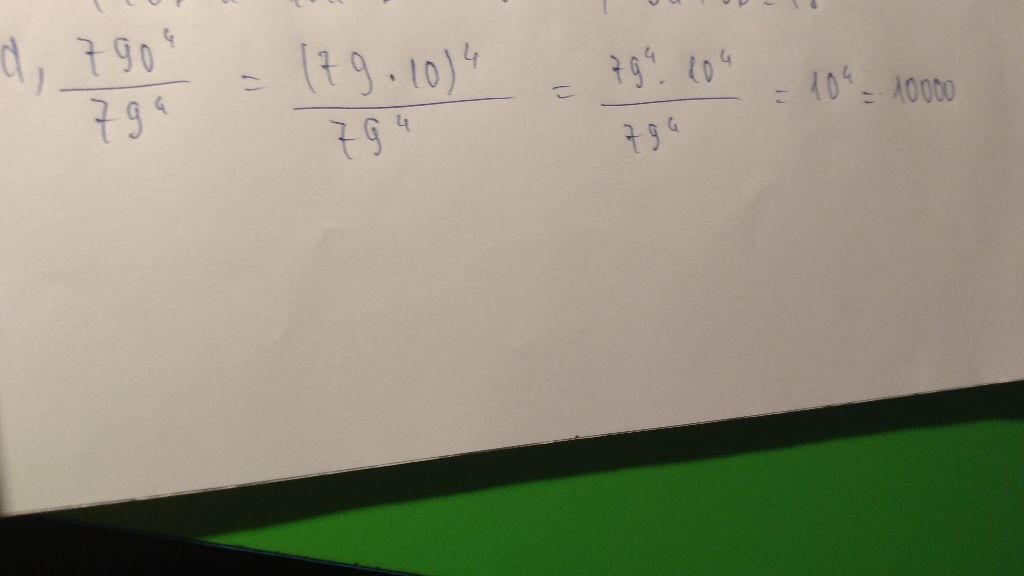 d, 790⁴/79⁴ = (79 · 10)⁴/79⁴ = 79⁴ · 10⁴/79⁴ = 10⁴ = 10000